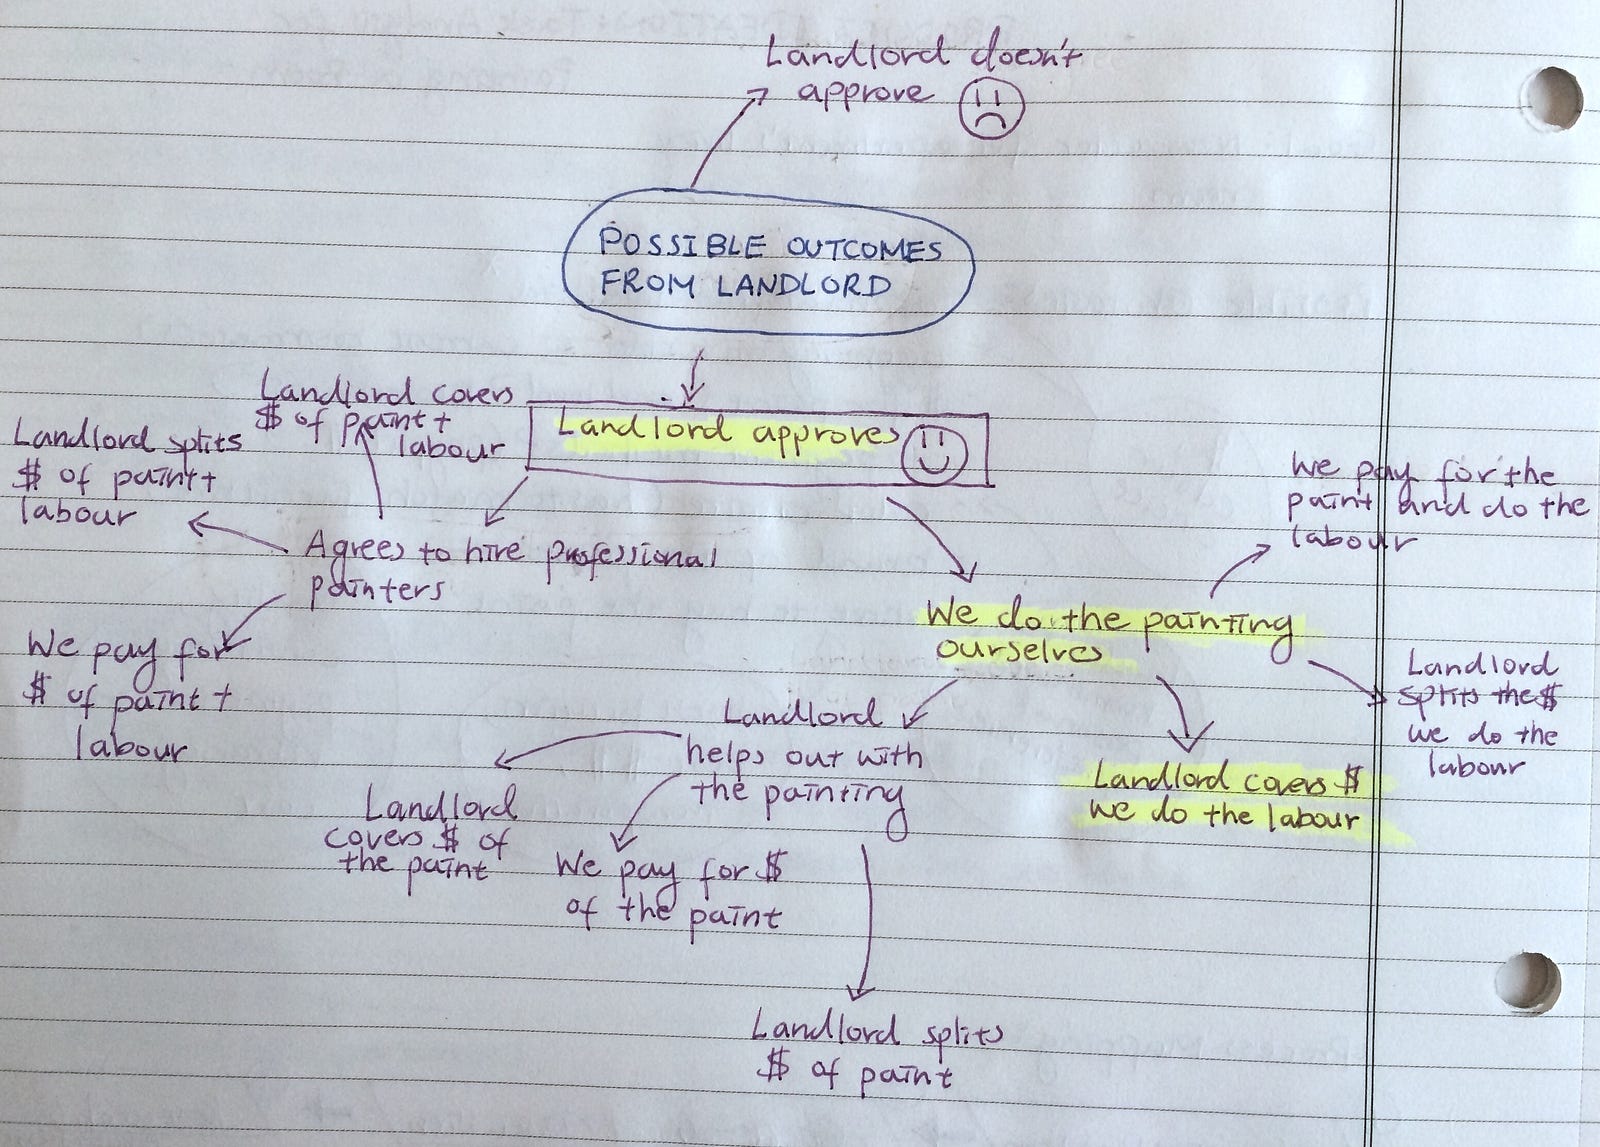 Landlord doesn't
approve
POSSIBLE OUTCOMES
FROM LANDLORD
Landlord approves
Landlord covers
$ of paint +
labour
Landlord splits
$ of paint +
labour
Agrees to hire professional
painters
We pay for
$ of paint +
labour
We do the painting
ourselves
We pay for the
paint and do the
labour
Landlord
splits the $
we do the
labour
Landlord covers $
we do the labour
Landlord
helps out with
the painting
Landlord
covers $ of
the paint
We pay for $
of the paint
Landlord splits
$ of paint